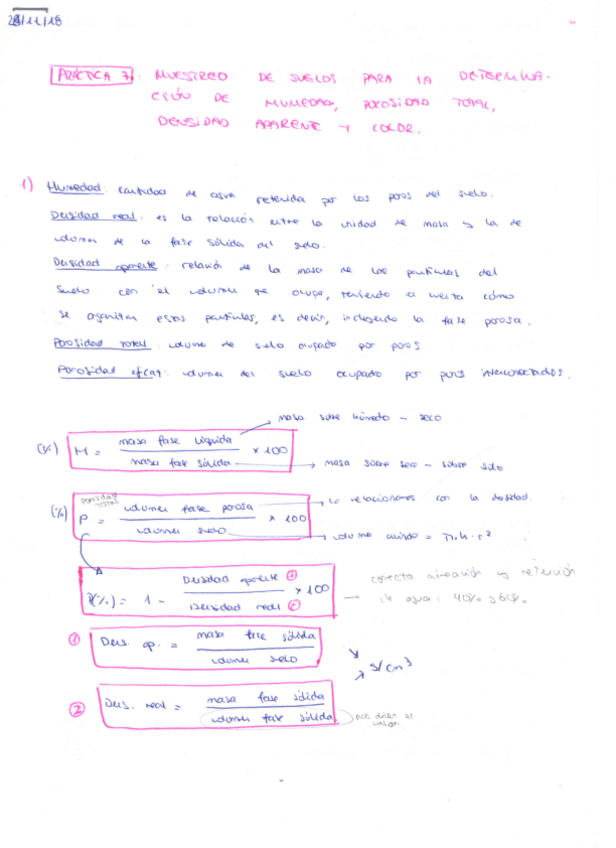 28/11/18
PRÁCTICA 7: MUESTREO DE SUELOS PARA LA DETERMINA-
CIÓN DE HUMEDAD, POROSIDAD TOTAL,
DENSIDAD APARENTE Y COLOR.
1) Humedad: cantidad de agua retenida por los poros del suelo.
Densidad real: es la relación entre la unidad de masa y la de
volumen de la fase sólida del suelo.
Densidad aparente: relación de la masa de las partículas del
suelo con el volumen que ocupa, teniendo en cuenta cómo
se organizan estas partículas, es decir, incluyendo la fase porosa.
Porosidad total: volumen de suelo ocupado por poros
Porosidad eficaz: volumen del suelo ocupado por poros interconectados.
masa sobre húmedo - seco
(%) H = masa fase líquida / masa fase sólida × 100
masa sobre seco - sobre solo
(%) porosidad total P = volumen fase porosa / volumen suelo × 100
lo relacionamos con la densidad.
volumen = π.h.r²
P(%) = 1 - Densidad aparente ① / Densidad real ② × 100
correcta aireación y retención
de agua: 40% 60%
① Dens. ap. = masa fase sólida / volumen suelo
g/cm³
② Dens. real = masa fase sólida / volumen fase sólida
nos dan el valor